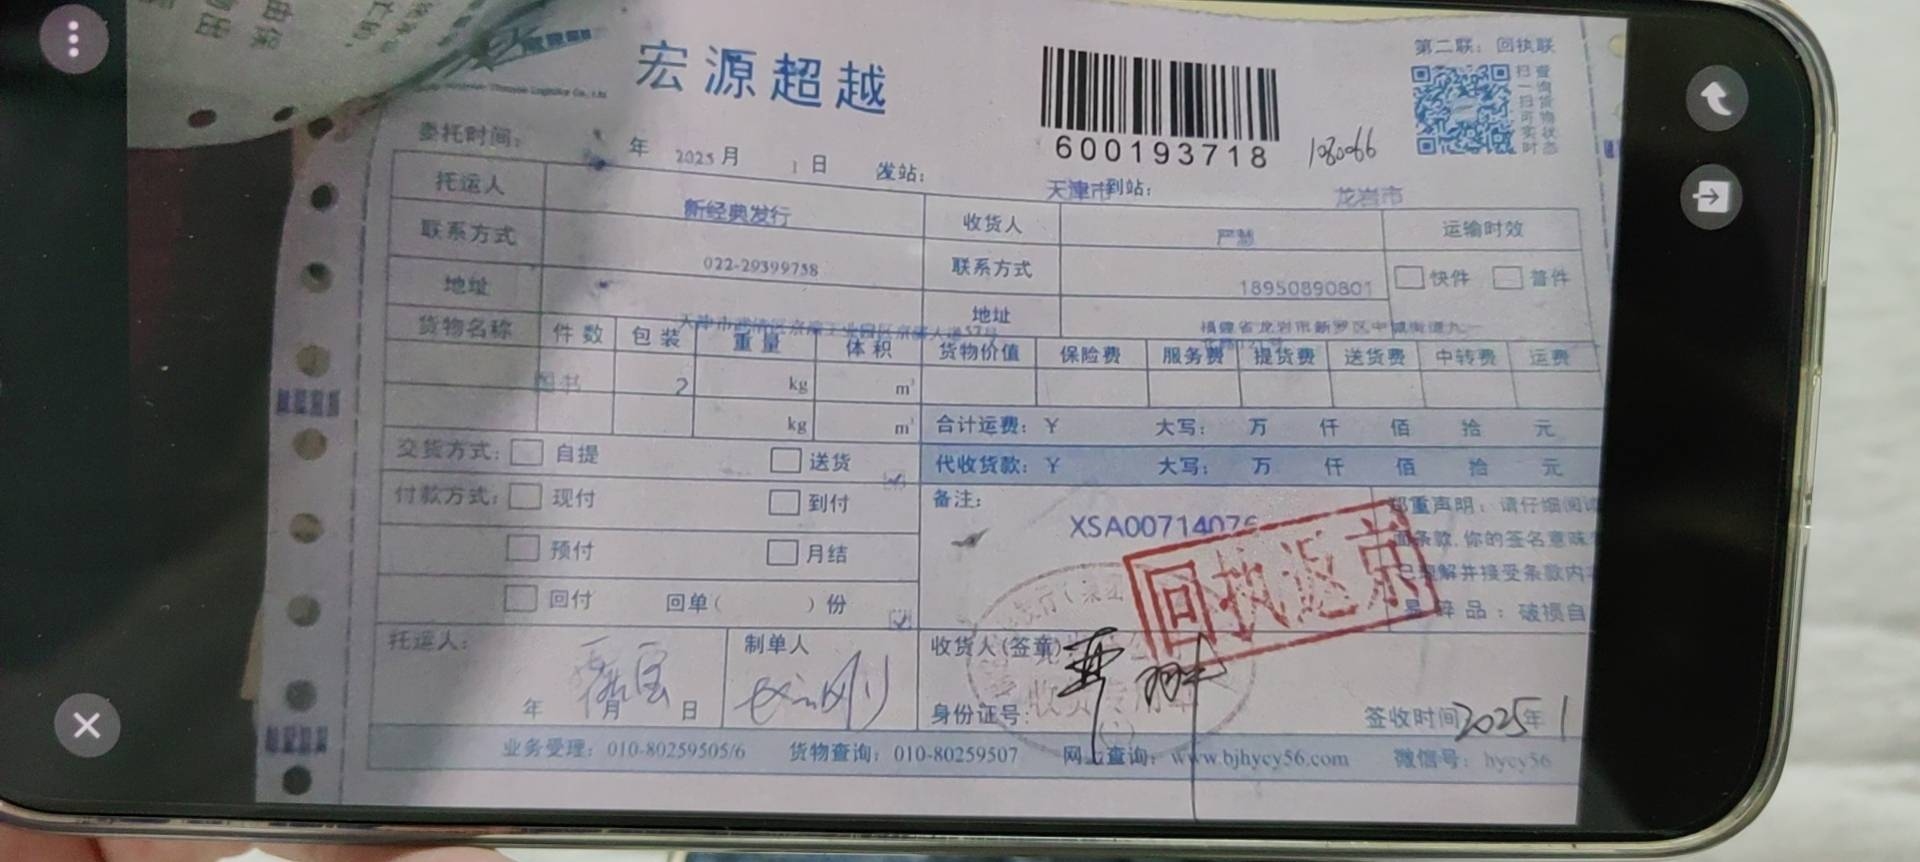 宏源超越
600193718
1080066
第二联：回执联
扫一扫可实时
查询货物状态
委托时间： 年 2025 月 1 日 发站： 天津市 到站： 龙岩市
托运人 新经典发行 收货人 严慧 运输时效
联系方式 022-29399758 联系方式 18950890801 快件 普件
地址 地址
货物名称 件数 包装 重量 体积 货物价值 保险费 服务费 提货费 送货费 中转费 运费
图书 2 kg m³
kg m³ 合计运费：￥ 大写： 万 仟 佰 拾 元
交货方式： 自提 送货 代收货款：￥ 大写： 万 仟 佰 拾 元
付款方式： 现付 到付 备注： XSA00714076 郑重声明：请仔细阅读
预付 月结 面条款,你的签名意味
回执返京
解并接受条款内
回付 回单( )份 易碎品：破损自
托运人： 制单人 收货人(签章)
年 月 日 身份证号： 签收时间 2025年 1
业务受理：010-80259505/6 货物查询：010-80259507 网上查询：www.bjhycy56.com 微信号：hycy56